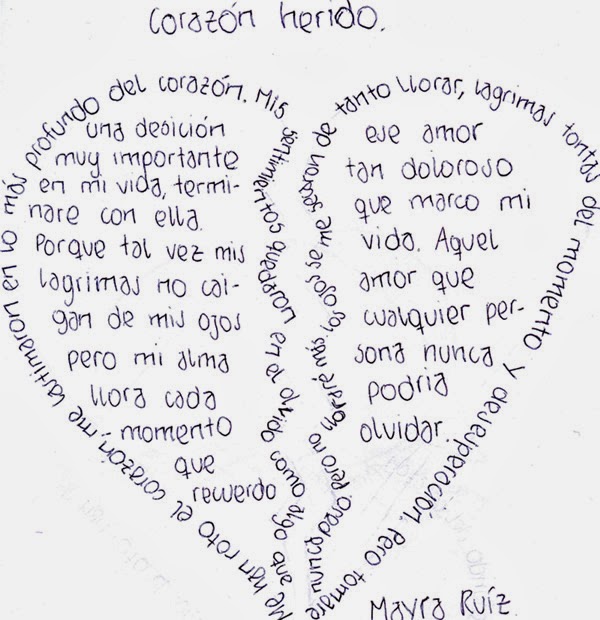 Corazón herido.
Me han roto el corazón, me lastimaron en lo más profundo del corazón. Mis sentimientos quedaron en lo olvido como algo que
nunca pasó, pero no lloraré más, los ojos se me secaron de tanto llorar, lagrimas tontas del momento y desesperación. Pero tomare
una desición
muy importante
en mi vida, termi-
nare con ella.
Porque tal vez mis
lagrimas no cai-
gan de mis ojos
pero mi alma
llora cada
momento
que
recuerdo
ese amor
tan doloroso
que marco mi
vida. Aquel
amor que
cualquier per-
sona nunca
podria
olvidar.
Mayra Ruíz.